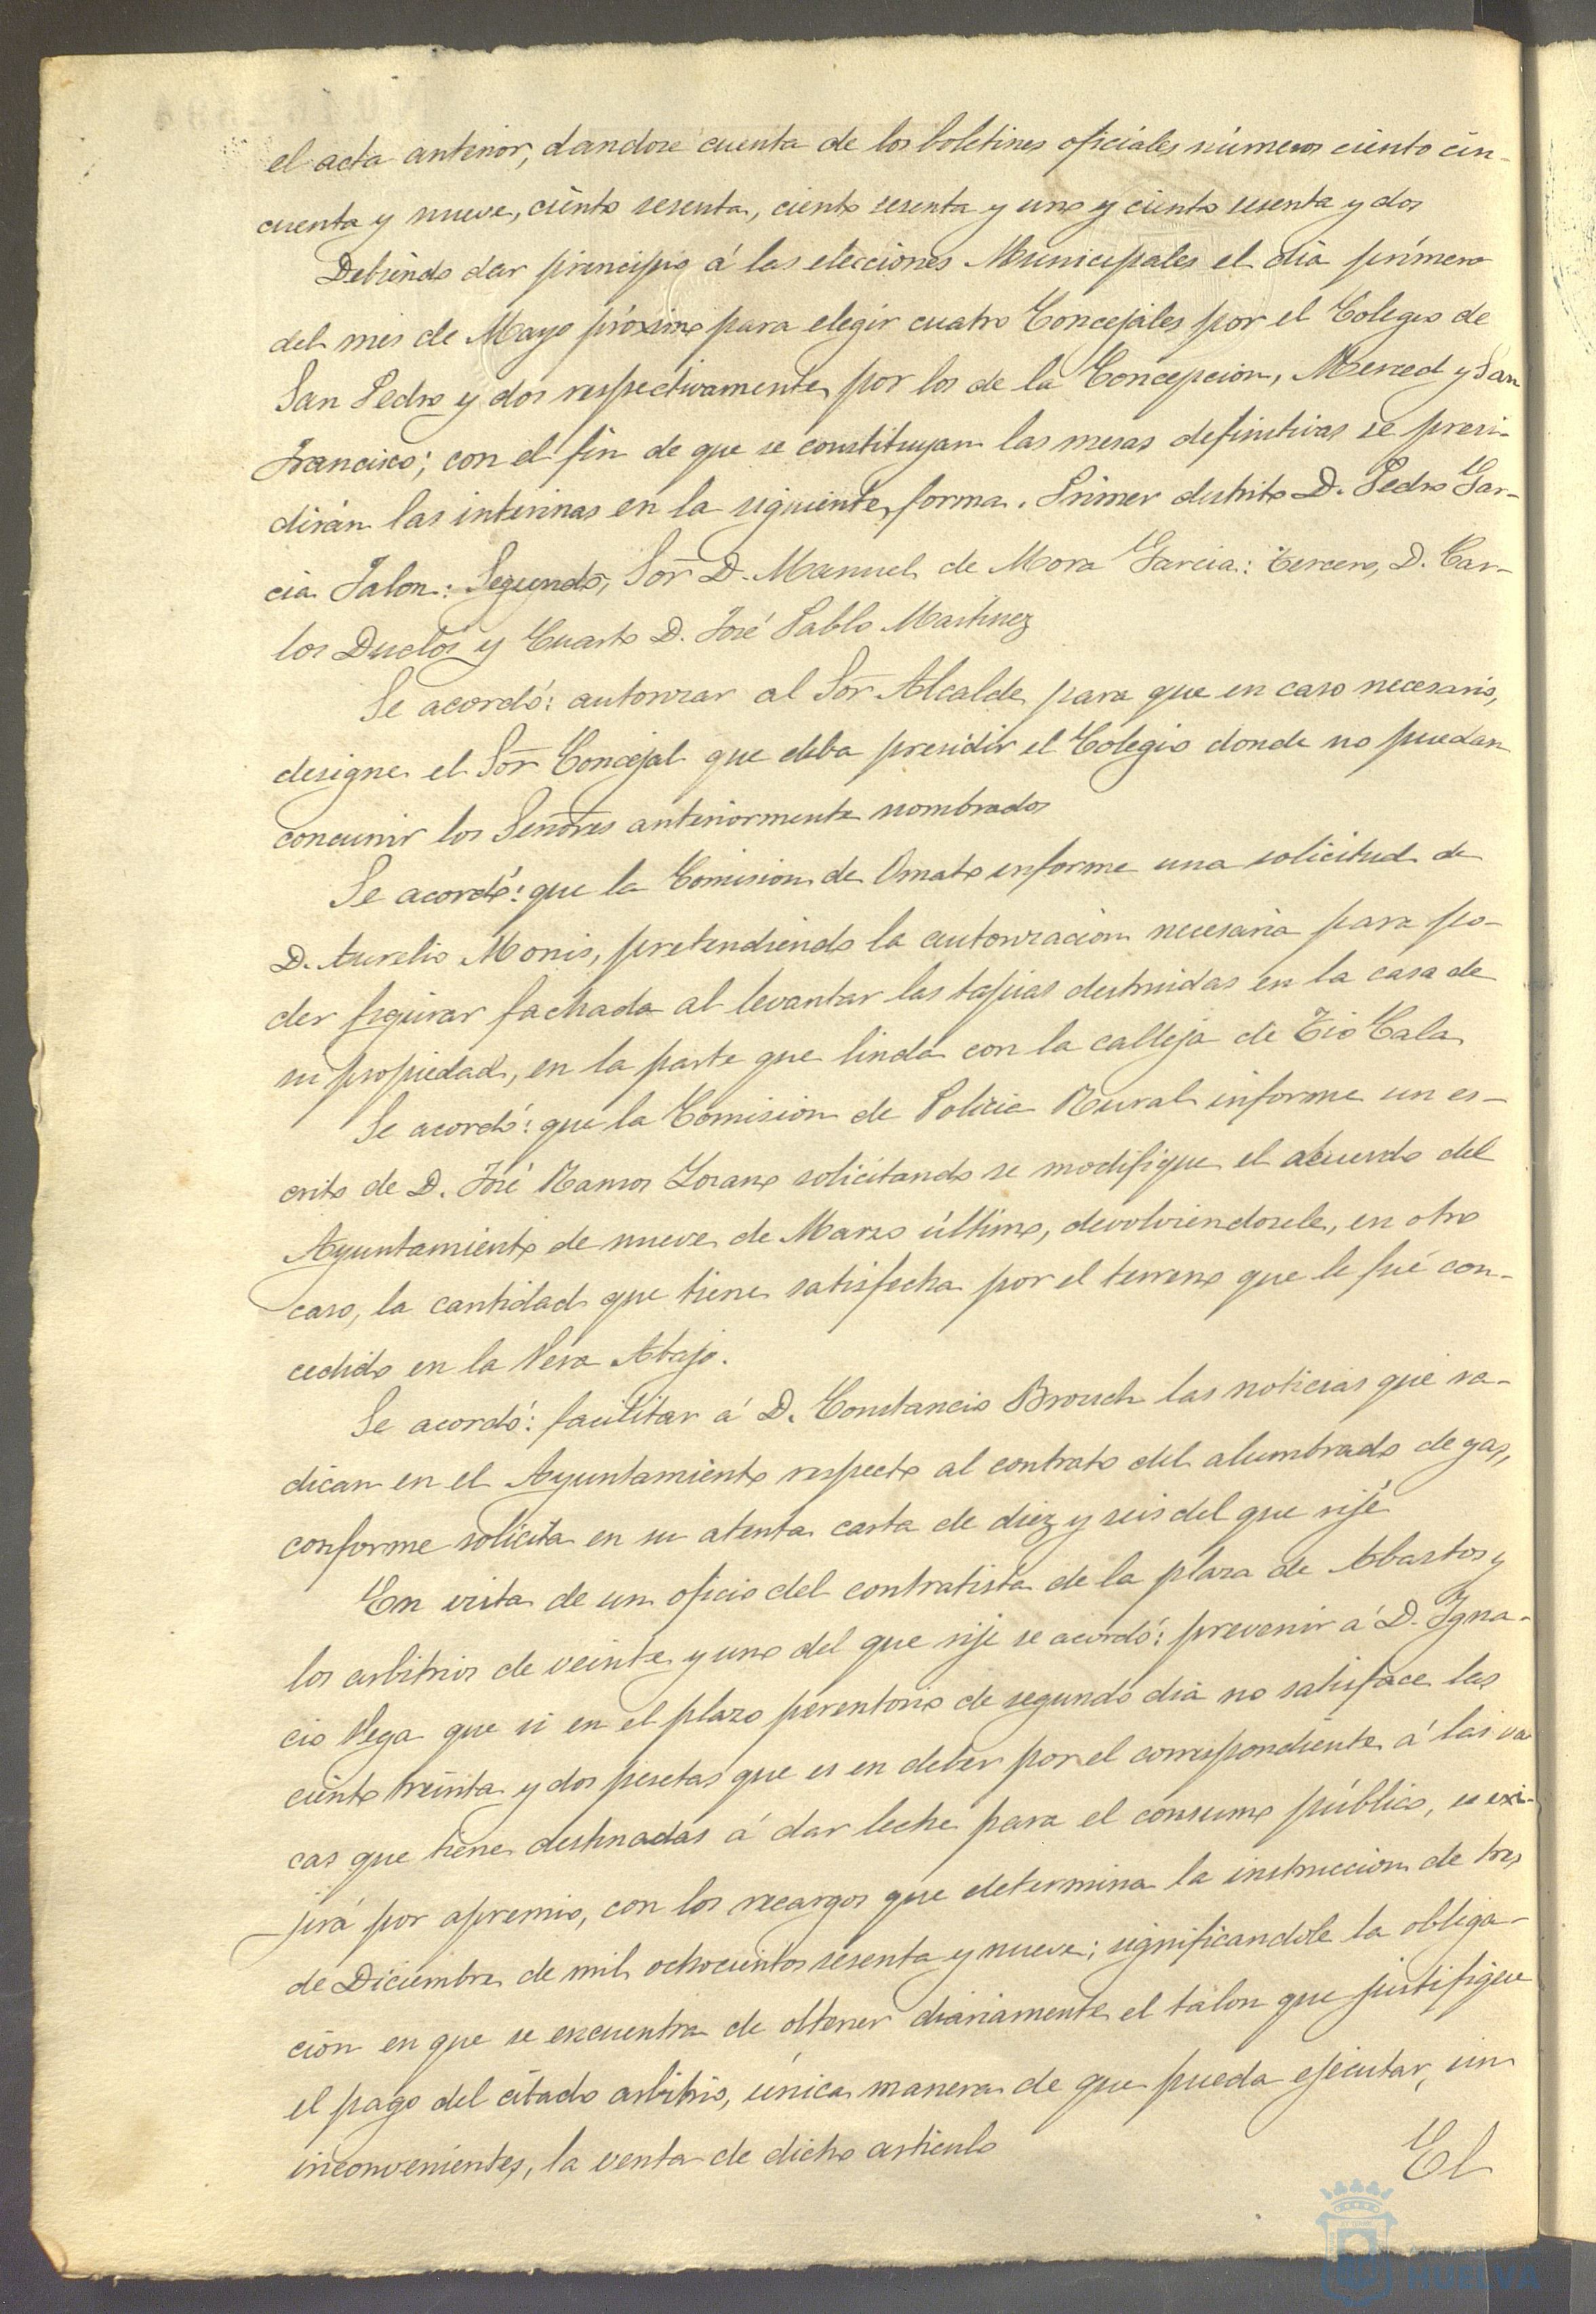 el acta anterior, dandose cuenta de los boletines oficiales números ciento cin-
cuenta y nueve, ciento sesenta, ciento sesenta y uno y ciento sesenta y dos
Debiendo dar principio á las elecciones Municipales el dia primero
del mes de Mayo próximo para elegir cuatro Concejales por el Colegio de
San Pedro y dos respectivamente por los de la Concepcion, Merced y San
Francisco; con el fin de que se constituyan las mesas definitivas se presi-
dirán las interinas en la siguiente forma. Primer distrito D. Pedro Gar-
cia Jalon: Segundo, Sor D. Manuel de Mora Garcia: tercero, D. Car-
los Duclós y Cuarto D. José Pablo Martinez
Se acordó: autorizar al Sor Alcalde para que en caso necesario,
designe el Sor Concejal que deba presidir el Colegio donde no puedan
concurrir los Señores anteriormente nombrados
Se acordó: que la Comision de Ornato informe una solicitud de
D. Aurelio Monis, pretendiendo la autorizacion necesaria para po-
der figurar fachada al levantar las tapias destruidas en la casa de
su propiedad, en la parte que linda con la calleja de Tio Cala
Se acordó: que la Comision de Policia Rural informe un es-
crito de D. José Ramos Lozano solicitando se modifique el acuerdo del
Ayuntamiento de nueve de Marzo último, devolviendosele, en otro
caso, la cantidad que tiene satisfecha por el terreno que le fué con-
cedido en la Vera Abajo.
Se acordó: facilitar á D. Constancio Brouch las noticias que ra-
dican en el Ayuntamiento respecto al contrato del alumbrado de gas,
conforme solicita en su atenta carta de diez y seis del que rije
En vista de un oficio del contratista de la plaza de Abastos y
los arbitrios de veinte y uno del que rije se acordó: prevenir á D. Igna-
cio Vega que si en el plazo perentorio de segundo dia no satisface las
ciento treinta y dos pesetas que es en deber por el correspondiente á las va
cas que tiene destinadas á dar leche para el consumo público, se exi-
jirá por apremio, con los recargos que determina la instruccion de tres
de Diciembre de mil ochocientos sesenta y nueve; significandole la obliga-
cion en que se encuentra de obtener diariamente el talon que justifique
el pago del citado arbitrio, única manera de que pueda ejecutar, sin
inconvenientes, la venta de dicho articulo
El
HUELVA